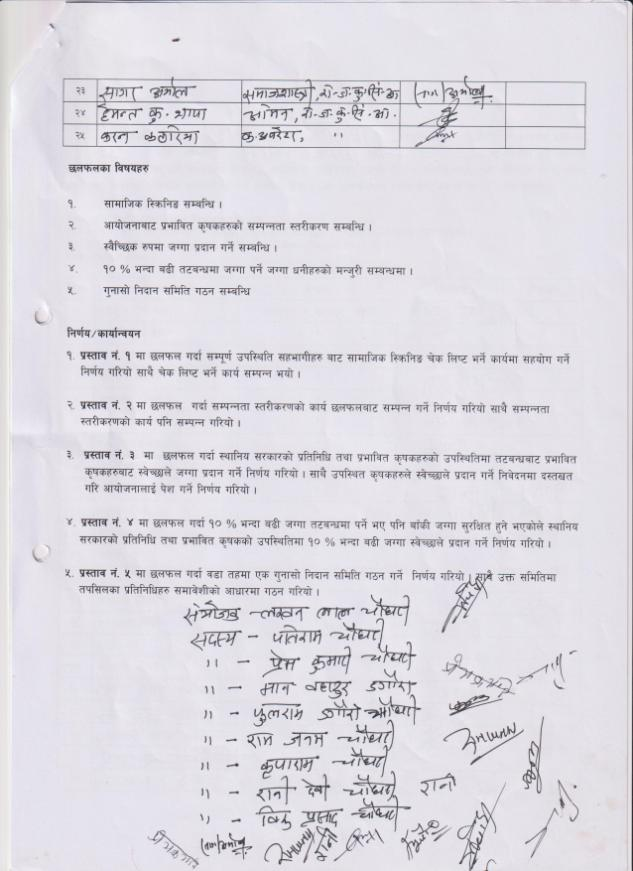 २३ सागर अर्याल समाजशास्त्री, रा.ज.कु.सिं.आ.
२४ हेमन्त कु. थापा अमिन, रा.ज.कु.सिं.आ.
२५ करन कठरिया क.अवरेया, "
छलफलका विषयहरु
१. सामाजिक स्क्रिनिङ सम्बन्धि ।
२. आयोजनाबाट प्रभावित कृषकहरुको सम्पन्नता स्तरीकरण सम्बन्धि ।
३. स्वैच्छिक रुपमा जग्गा प्रदान गर्ने सम्बन्धि ।
४. १० % भन्दा बढी तटबन्धमा जग्गा पर्ने जग्गा धनीहरुको मन्जुरी सम्बन्धमा ।
५. गुनासो निदान समिति गठन सम्बन्धि
निर्णय/कार्यान्वयन
१. प्रस्ताव नं. १ मा छलफल गर्दा सम्पूर्ण उपस्थिति सहभागीहरु बाट सामाजिक स्क्रिनिङ चेक लिष्ट भर्ने कार्यमा सहयोग गर्ने
निर्णय गरियो साथै चेक लिष्ट भर्ने कार्य सम्पन्न भयो ।
२. प्रस्ताव नं. २ मा छलफल गर्दा सम्पन्नता स्तरीकरणको कार्य छलफलबाट सम्पन्न गर्ने निर्णय गरियो साथै सम्पन्नता
स्तरीकरणको कार्य पनि सम्पन्न गरियो ।
३. प्रस्ताव नं. ३ मा छलफल गर्दा स्थानिय सरकारको प्रतिनिधि तथा प्रभावित कृषकहरुको उपस्थितिमा तटबन्धबाट प्रभावित
कृषकहरुबाट स्वेच्छाले जग्गा प्रदान गर्ने निर्णय गरियो । साथै उपस्थित कृषकहरुले स्वेच्छाले प्रदान गर्ने निवेदनमा दस्तखत
गरि आयोजनालाई पेश गर्ने निर्णय गरियो ।
४. प्रस्ताव नं. ४ मा छलफल गर्दा १० % भन्दा बढी जग्गा तटबन्धमा पर्ने भए पनि बाँकी जग्गा सुरक्षित हुने भएकोले स्थानिय
सरकारको प्रतिनिधि तथा प्रभावित कृषकको उपस्थितिमा १० % भन्दा बढी जग्गा स्वेच्छाले प्रदान गर्ने निर्णय गरियो ।
५. प्रस्ताव नं. ५ मा छलफल गर्दा वडा तहमा एक गुनासो निदान समिति गठन गर्ने निर्णय गरियो । साथै उक्त समितिमा
तपसिलका प्रतिनिधिहरु समावेशीको आधारमा गठन गरियो ।
संयोजक - लखन लाल चौधरी
सदस्य - पतिराम चौधरी
" - प्रेम कुमारी चौधरी
" - मान बहादुर डगौरा
" - फुलराम डगौरा चौधरी
" - राम जनम चौधरी
" - कृपाराम चौधरी
" - रानी देवी चौधरी रानी
" - विष्णु प्रसाद चौधरी
रानी